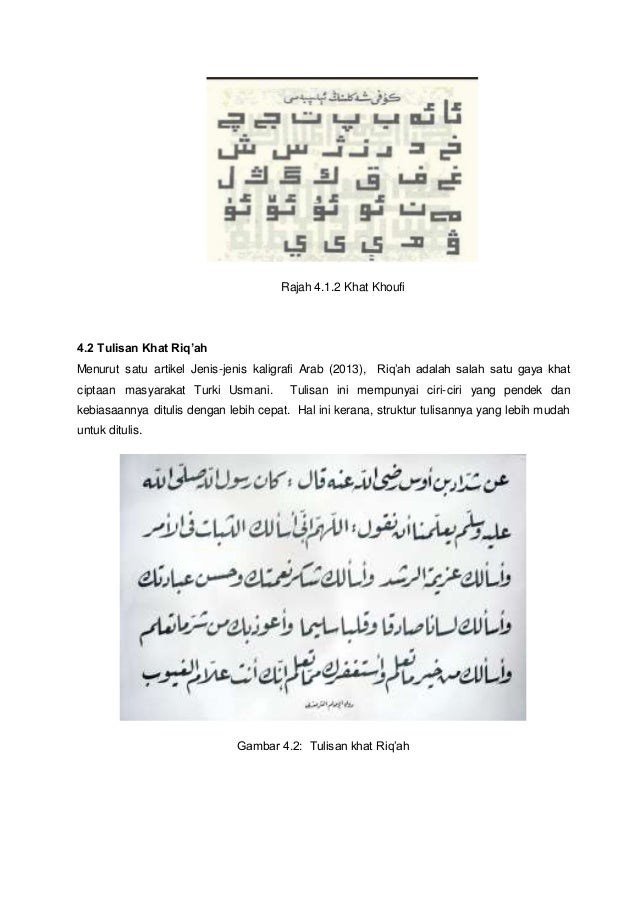 كۇفى شەكلىنىڭ ئېلىپبەسى
ئا ئە ب پ ت ج چ
خ د ر ز ژ س ش
غ ف ق ك گ ڭ ل
م ن ئو ئۇ ئۆ ئۈ
ۋ ھ ې ى ي
Rajah 4.1.2 Khat Khoufi
4.2 Tulisan Khat Riq’ah
Menurut satu artikel Jenis-jenis kaligrafi Arab (2013), Riq’ah adalah salah satu gaya khat
ciptaan masyarakat Turki Usmani. Tulisan ini mempunyai ciri-ciri yang pendek dan
kebiasaannya ditulis dengan lebih cepat. Hal ini kerana, struktur tulisannya yang lebih mudah
untuk ditulis.
عن شدّاد بن أوس رضي الله عنه قال : كان رسول الله صلّى الله
عليه وسلّم يعلّمنا أن نقول : اللّهمّ إنّي أسألك الثبات في الأمر
وأسألك عزيمة الرشد وأسألك شكر نعمتك وحسن عبادتك
وأسألك لسانا صادقا وقلبا سليما وأعوذ بك من شرّ ما تعلم
وأسألك من خير ما تعلم وأستغفرك ممّا تعلم إنّك أنت علّام الغيوب
رواه الإمام الترمذي
Gambar 4.2: Tulisan khat Riq’ah